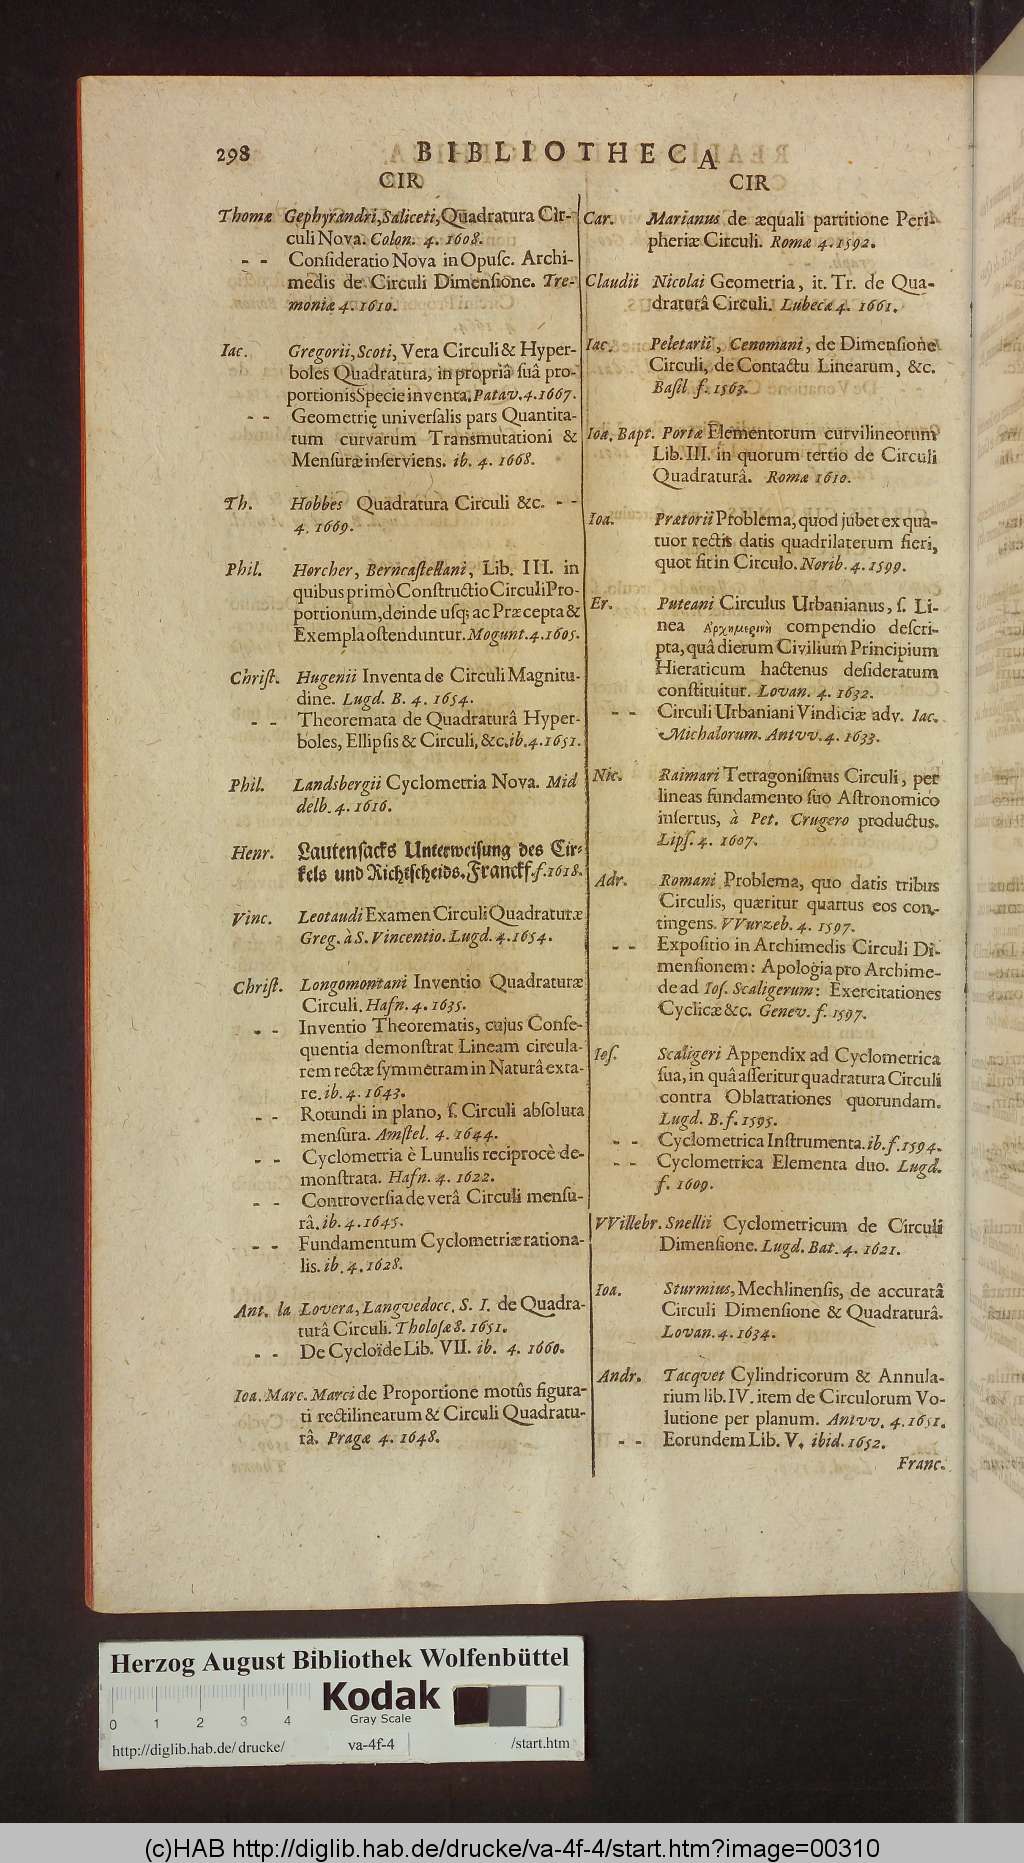 298 BIBLIOTHECA
CIR
Thomæ Gephyrandri, Saliceti, Quadratura Cir-
culi Nova. Colon. 4. 1608.
- - Consideratio Nova in Opusc. Archi-
medis de Circuli Dimensione. Tre-
moniæ 4. 1610.
Iac. Gregorii, Scoti, Vera Circuli & Hyper-
boles Quadratura, in propriâ suâ pro-
portionis Specie inventa. Patav. 4. 1667.
- - Geometrię universalis pars Quantita-
tum curvarum Transmutationi &
Mensuræ inserviens. ib. 4. 1668.
Th. Hobbes Quadratura Circuli &c. - -
4. 1669.
Phil. Horcher, Berncastellani, Lib. III. in
quibus primò Constructio Circuli Pro-
portionum, deinde usq; ac Præcepta &
Exempla ostenduntur. Mogunt. 4. 1605.
Christ. Hugenii Inventa de Circuli Magnitu-
dine. Lugd. B. 4. 1654.
- - Theoremata de Quadraturâ Hyper-
boles, Ellipsis & Circuli, &c. ib. 4. 1651.
Phil. Landsbergii Cyclometria Nova. Mid
delb. 4. 1616.
Henr. Lautensacks Unterweisung des Cir-
kels und Richtscheids. Franckf. f. 1618.
Vinc. Leotaudi Examen Circuli Quadraturæ
Greg. à S. Vincentio. Lugd. 4. 1654.
Christ. Longomontani Inventio Quadraturæ
Circuli. Hafn. 4. 1635.
- - Inventio Theorematis, cujus Conse-
quentia demonstrat Lineam circula-
rem rectæ symmetram in Naturâ exta-
re. ib. 4. 1643.
- - Rotundi in plano, s. Circuli absoluta
mensura. Amstel. 4. 1644.
- - Cyclometria è Lunulis reciprocè de-
monstrata. Hafn. 4. 1622.
- - Controversia de verâ Circuli mensu-
râ. ib. 4. 1645.
- - Fundamentum Cyclometriæ rationa-
lis. ib. 4. 1628.
Ant. la Lovera, Langvedocc. S. I. de Quadra-
turâ Circuli. Tholosæ 8. 1651.
- - De Cycloide Lib. VII. ib. 4. 1660.
Ioa. Marc. Marci de Proportione motûs figura-
ti rectilinearum & Circuli Quadratu-
râ. Pragæ 4. 1648.
CIR
Car. Marianus de æquali partitione Peri-
pheriæ Circuli. Romæ 4. 1592.
Claudii Nicolai Geometria, it. Tr. de Qua-
draturâ Circuli. Lubecæ 4. 1661.
Iac. Peletarii, Cenomani, de Dimensione
Circuli, de Contactu Linearum, &c.
Basil f. 1563.
Ioa. Bapt. Portæ Elementorum curvilineorum
Lib. III. in quorum tertio de Circuli
Quadraturâ. Romæ 1610.
Ioa. Prætorii Problema, quod jubet ex qua-
tuor rectis datis quadrilaterum fieri,
quot sit in Circulo. Norib. 4. 1599.
Er. Puteani Circulus Urbanianus, s. Li-
nea Ἀρχημερινὴ compendio descri-
pta, quâ dierum Civilium Principium
Hieraticum hactenus desideratum
constituitur. Lovan. 4. 1632.
- - Circuli Urbaniani Vindiciæ adv. Iac.
Michalorum. Antvv. 4. 1633.
Nic. Raimari Tetragonismus Circuli, per
lineas fundamento suo Astronomico
insertus, à Pet. Crugero productus.
Lips. 4. 1607.
Adr. Romani Problema, quo datis tribus
Circulis, quæritur quartus eos con-
tingens. VVurzeb. 4. 1597.
- - Expositio in Archimedis Circuli Di-
mensionem: Apologia pro Archime-
de ad Ios. Scaligerum: Exercitationes
Cyclicæ &c. Genev. f. 1597.
Ios. Scaligeri Appendix ad Cyclometrica
sua, in quâ asseritur quadratura Circuli
contra Oblatrationes quorundam.
Lugd. B. f. 1595.
- - Cyclometrica Instrumenta. ib. f. 1594.
- - Cyclometrica Elementa duo. Lugd.
f. 1609.
VVillebr. Snellii Cyclometricum de Circuli
Dimensione. Lugd. Bat. 4. 1621.
Ioa. Sturmius, Mechlinensis, de accuratâ
Circuli Dimensione & Quadraturâ.
Lovan. 4. 1634.
Andr. Tacqvet Cylindricorum & Annula-
rium lib. IV. item de Circulorum Vo-
lutione per planum. Antvv. 4. 1651.
- - Eorundem Lib. V. ibid. 1652.
Franc.
Herzog August Bibliothek Wolfenbüttel
Kodak
Gray Scale
0 1 2 3 4
http://diglib.hab.de/drucke/ va-4f-4 /start.htm
(c)HAB http://diglib.hab.de/drucke/va-4f-4/start.htm?image=00310